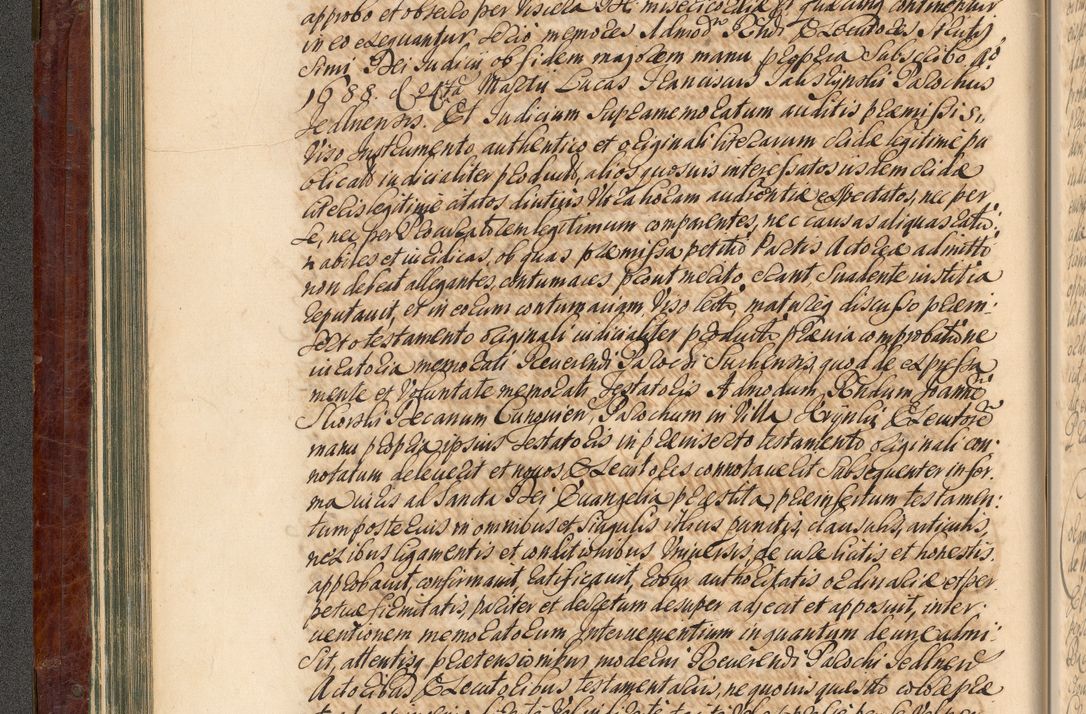 approbo et obsecro per viscera DEI misericordiæ ut quæcunq continentur
in eo exequantur serio memores Admod Rndi Executores
simi Dei Judicis ob fidem majorem manu propria subscribo Ao
1688. Mattis Lucas Franciscus Parochus
Jedlnensis. Et Judicium supramemoratum auditis præmissis,
viso Instrumento authentico et originali literarum eridæ legitime pu
blicato iudicialiter producto, aliosq suos interessatos iisdem cridæ
literis legitime citatos diutius ultra horam audientiæ expectatos, nec per
se, nec per Procuratorem legitimum comparentes, nec causas aliquas ratio
nabiles et iuridicas, ob quas præmissa petitio Partis Actoreæ admitti
non debeat allegantes, contumaces prout merito erant, suadente iustitia
reputavit, et in eorum contumaciam, viso lecto, matureq discusso præin
serto testamento originali iudicialiter producto, prævia comprobatione
iuratoria memorati Reverendi Parochi quod de expressa
mente et voluntate memorati Testatoris Admodum Rndum Joann
Decanum Parochum in Villa Executore
manu propria ipsius Testatoris in præinserto testamento originali con
notatum deleverit et novos Executores connotaverit subsequenter in for
ma iuris ad Sancta Dei Euangelia præstita, præinsertum testamen
tum posterius in omnibus et singulis illius punctis, clausulis, articulis,
nexibus ligamentis et conditionibus universis de iure licitis et honestis
approbavit confirmavit ratificavit, robur authoritatis ordinariæ et per
petuæ firmitatis, pariter et decretum desuper adjecit et apposuit, inter
ventionem memoratorum Intervenientium in quantum de iure admi
sit, attentisq prætensionibus moderni Reverendi Parochi Jedlnen
Actoribus Executoribus testamentariis, ne quovis quæsito colore præ